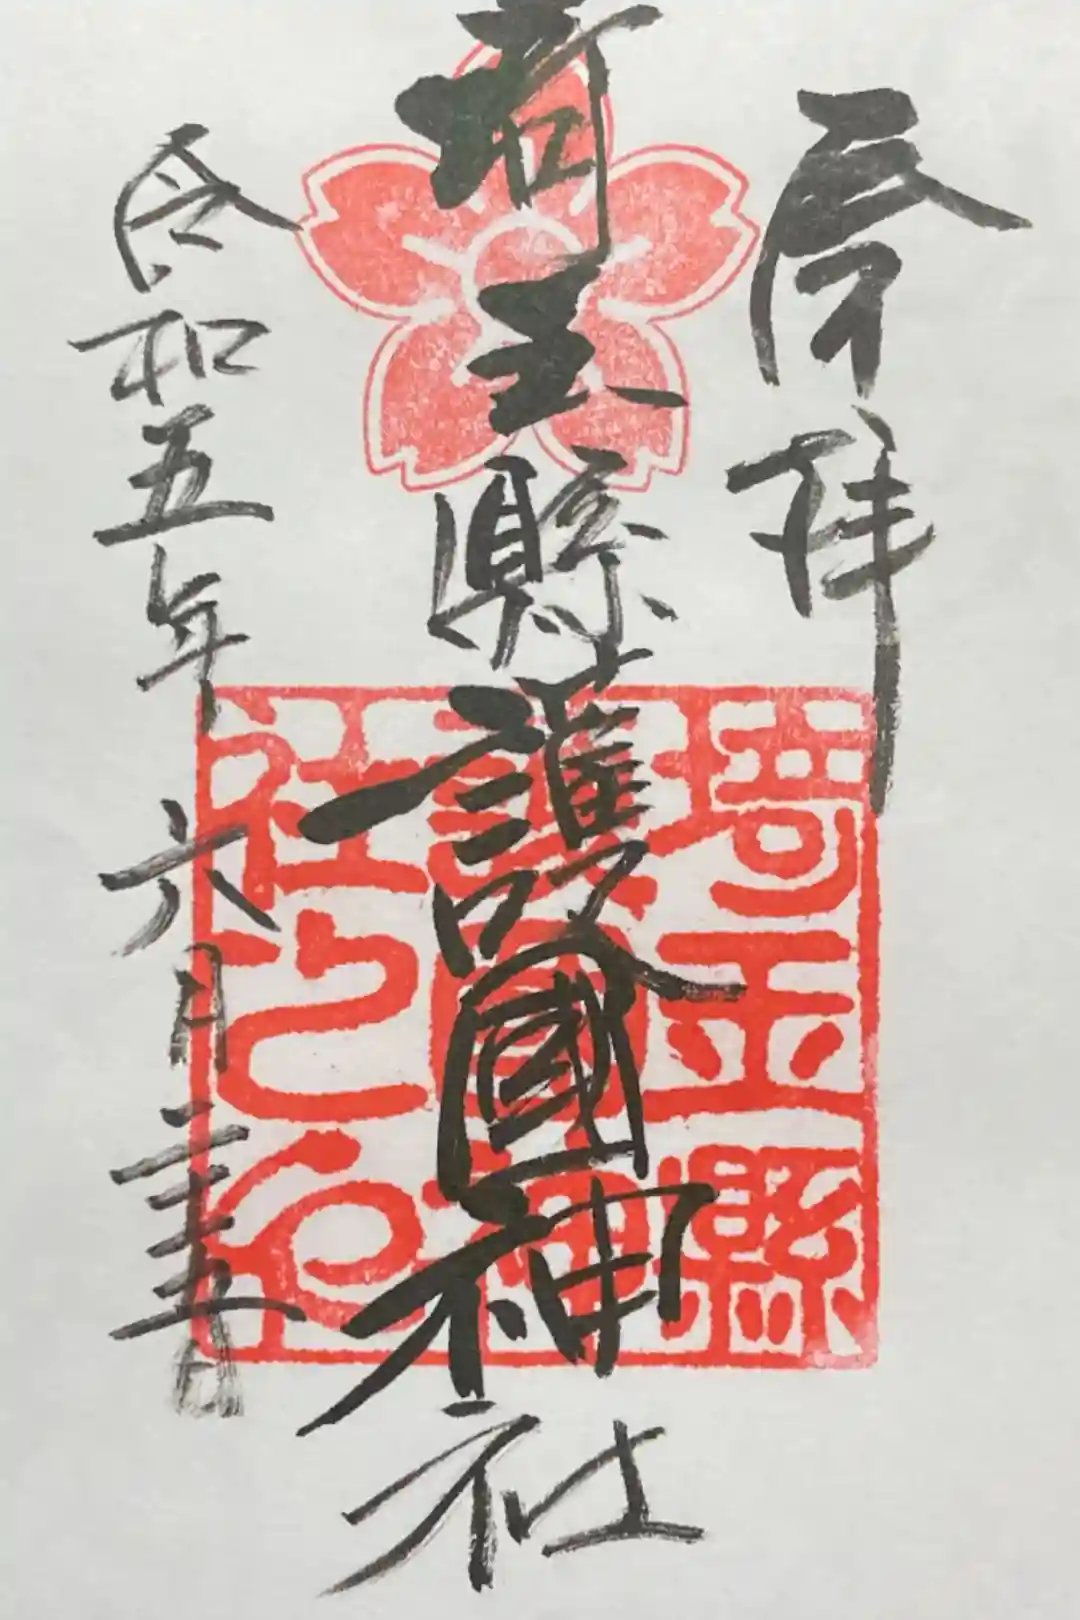 奉拝
埼玉縣護國神社
令和五年六月二十五日
埼玉縣
護國神
社之印